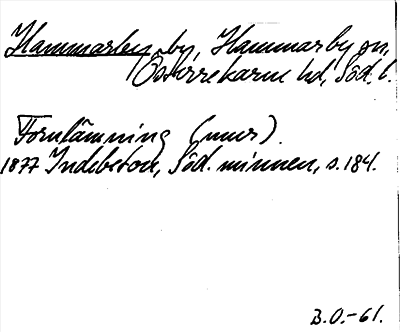 Hammarby by, Hammarby sn,
Österrekarne hd, Söd. l.
Fornlämning (mur).
1877 Indebetou, Söd. minnen, s. 184.
B.O.-61.